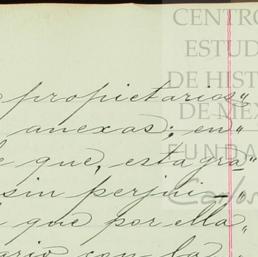 CENTRO
ESTUD
DE HIST
DE MÉX
FUNDA
Carlos
propietarios,,
anexas; en,,
que, esta gra
sin perjui-,,
que por ella,,
ario con la